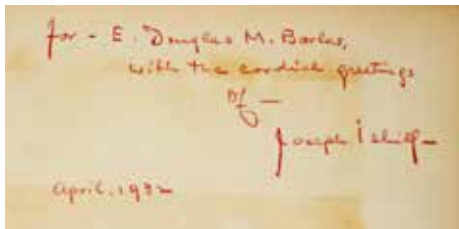 for - E. Douglas M. Barlas,
with the cordial greetings
of —
Joseph Ishill —
April, 1932